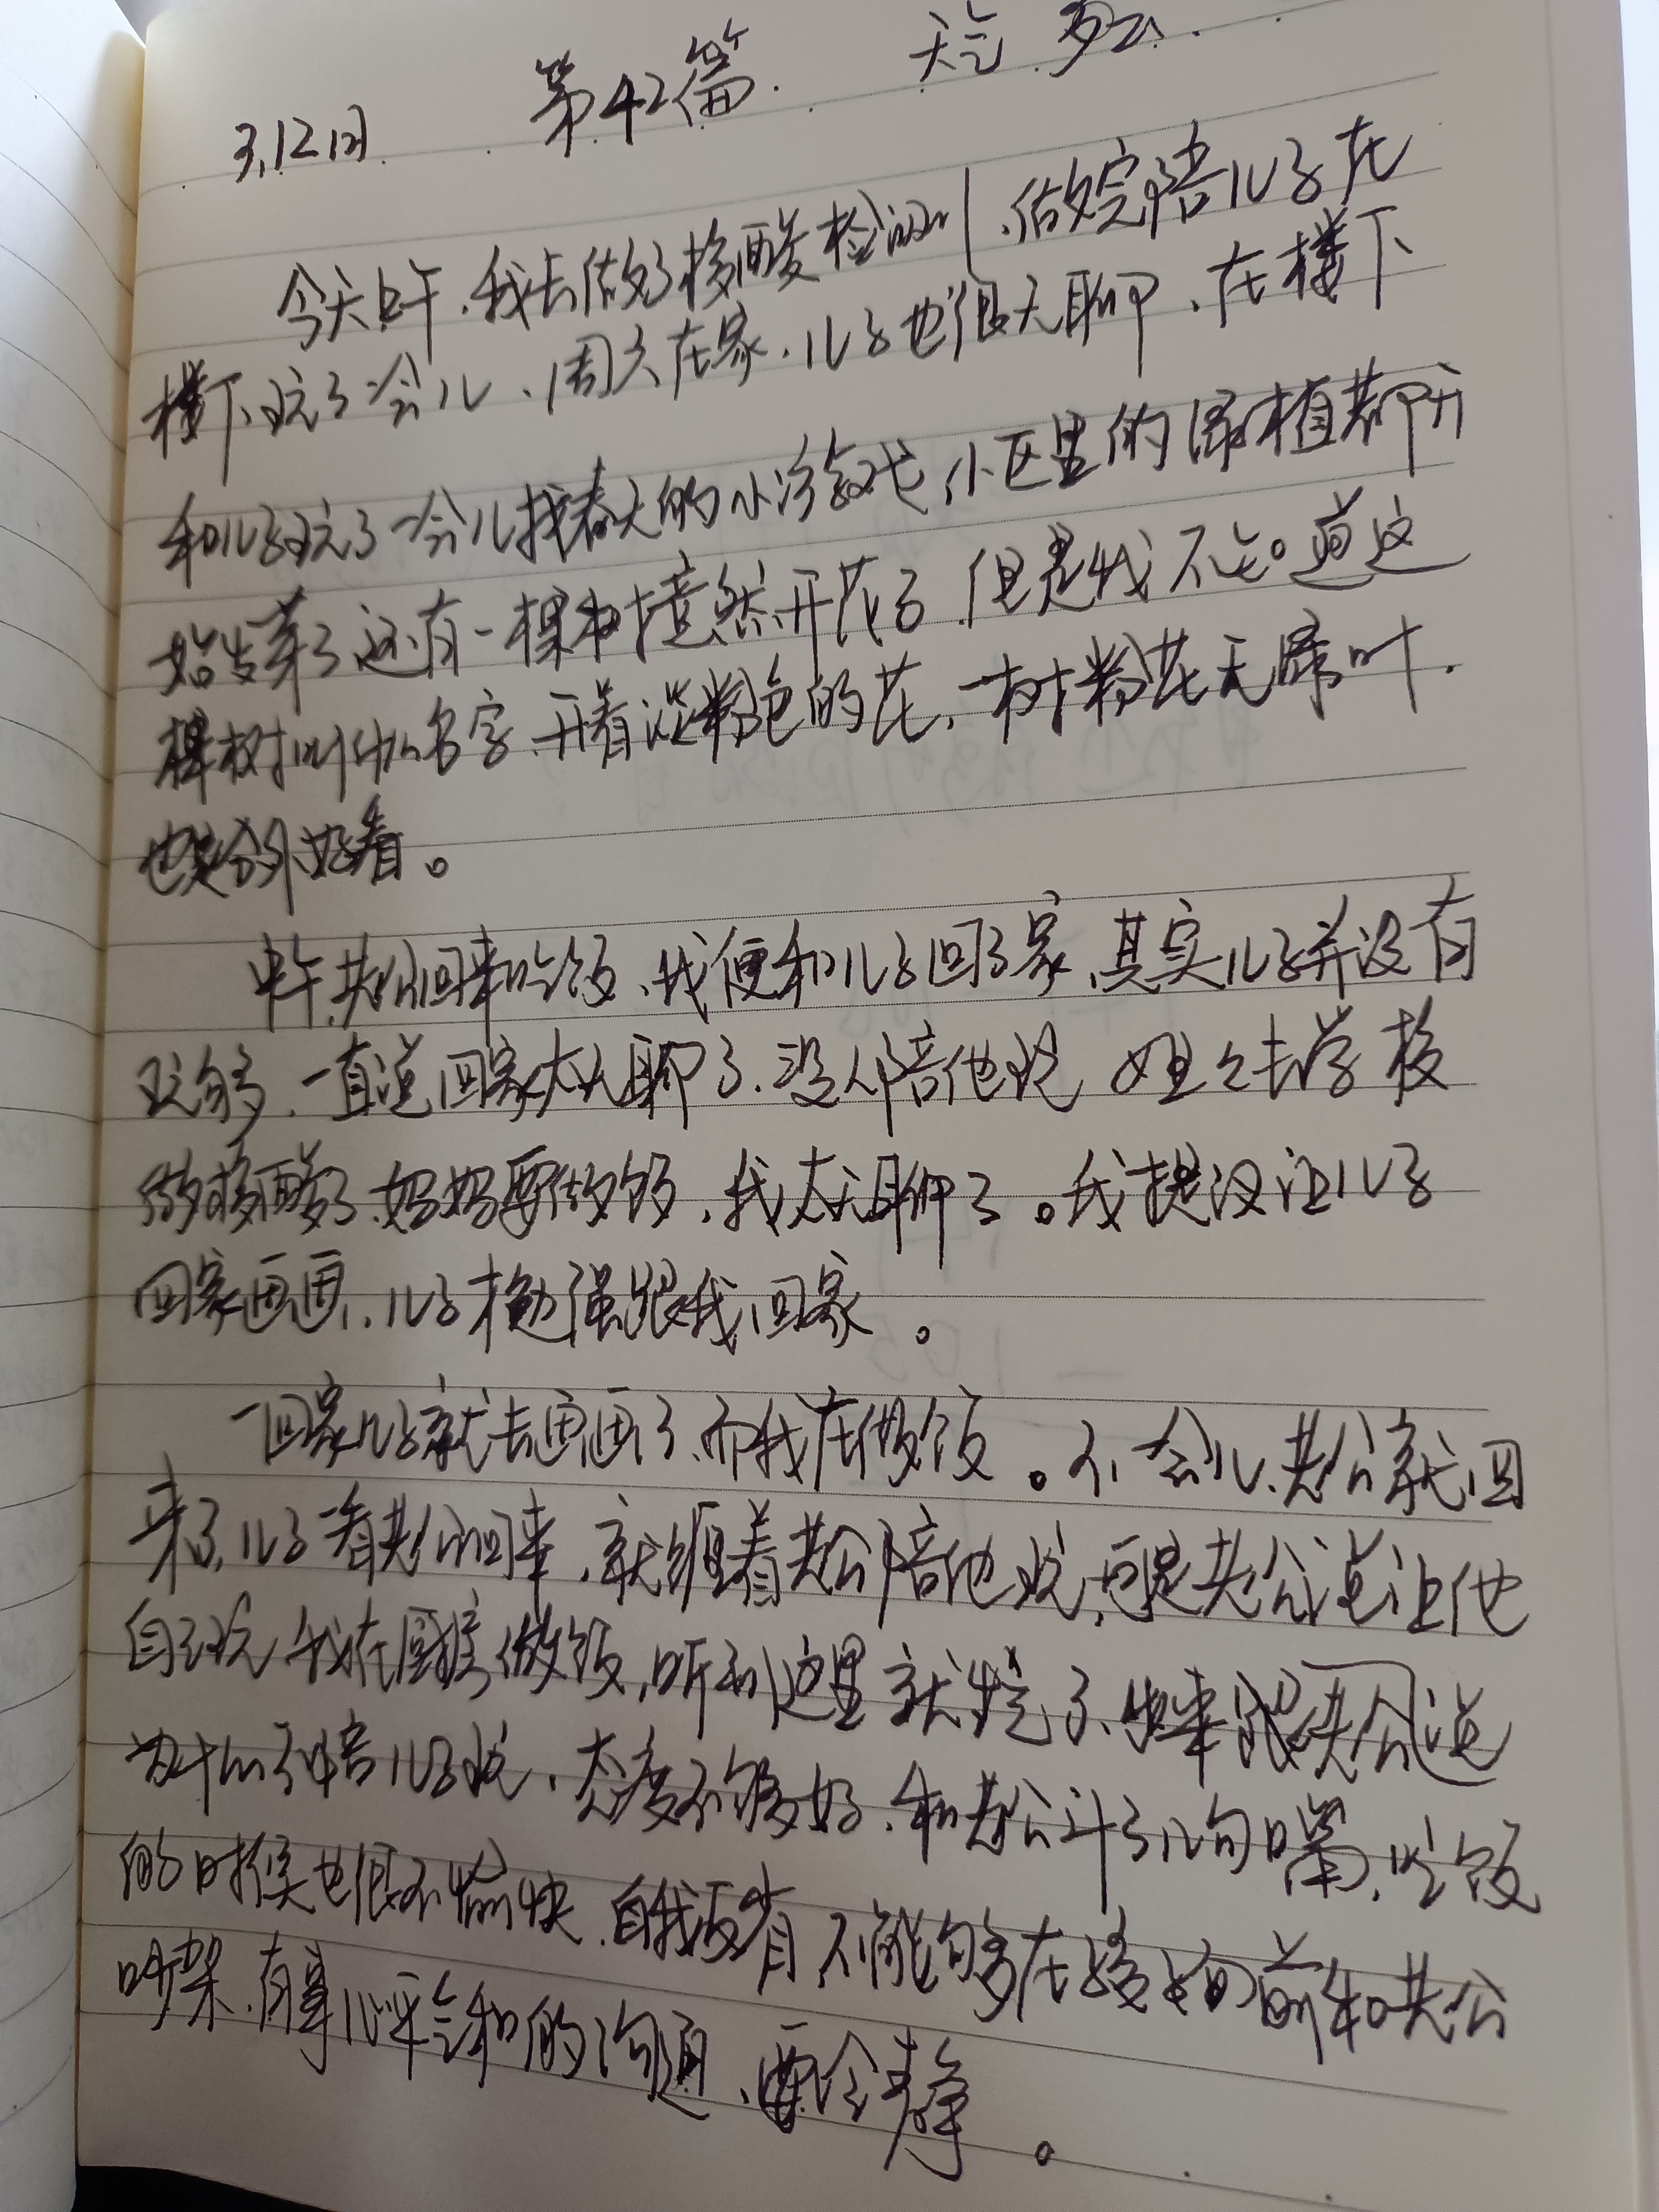 3.12日. 第42篇. 天气.多云.
今天上午.我去做了核酸检测.做完陪儿子在
楼下玩了一会儿.周六在家.儿子也很无聊.在楼下
和儿子玩了一会儿找春天的小游戏,小区里的绿植都开
始发芽了还有一棵树竟然开花了.但是我不知道这
棵树叫什么名字.开着淡粉色的花,一树粉花无绿叶.
也是分外好看。
中午老公回来吃饭.我便和儿子回了家.其实儿子并没有
玩够.一直说回家太无聊了.没人陪他玩 姐姐去学校
做核酸了.妈妈要做饭.我太无聊了。我提议让儿子
回家画画.儿子才勉强跟我回家。
一回家儿子就去画画了.而我在做饭。不一会儿.老公就回
来了.儿子一看老公回来.就缠着老公陪他玩,可是老公说让他
自己玩 我在厨房做饭,听到这里就慌了.出来跟老公说
为什么不陪儿子玩.态度不够好.和老公斗了几句嘴.吃饭
的时候也很不愉快.自我反省 不能够在孩子面前和老公
吵架.有事心平气和的沟通.要冷静。